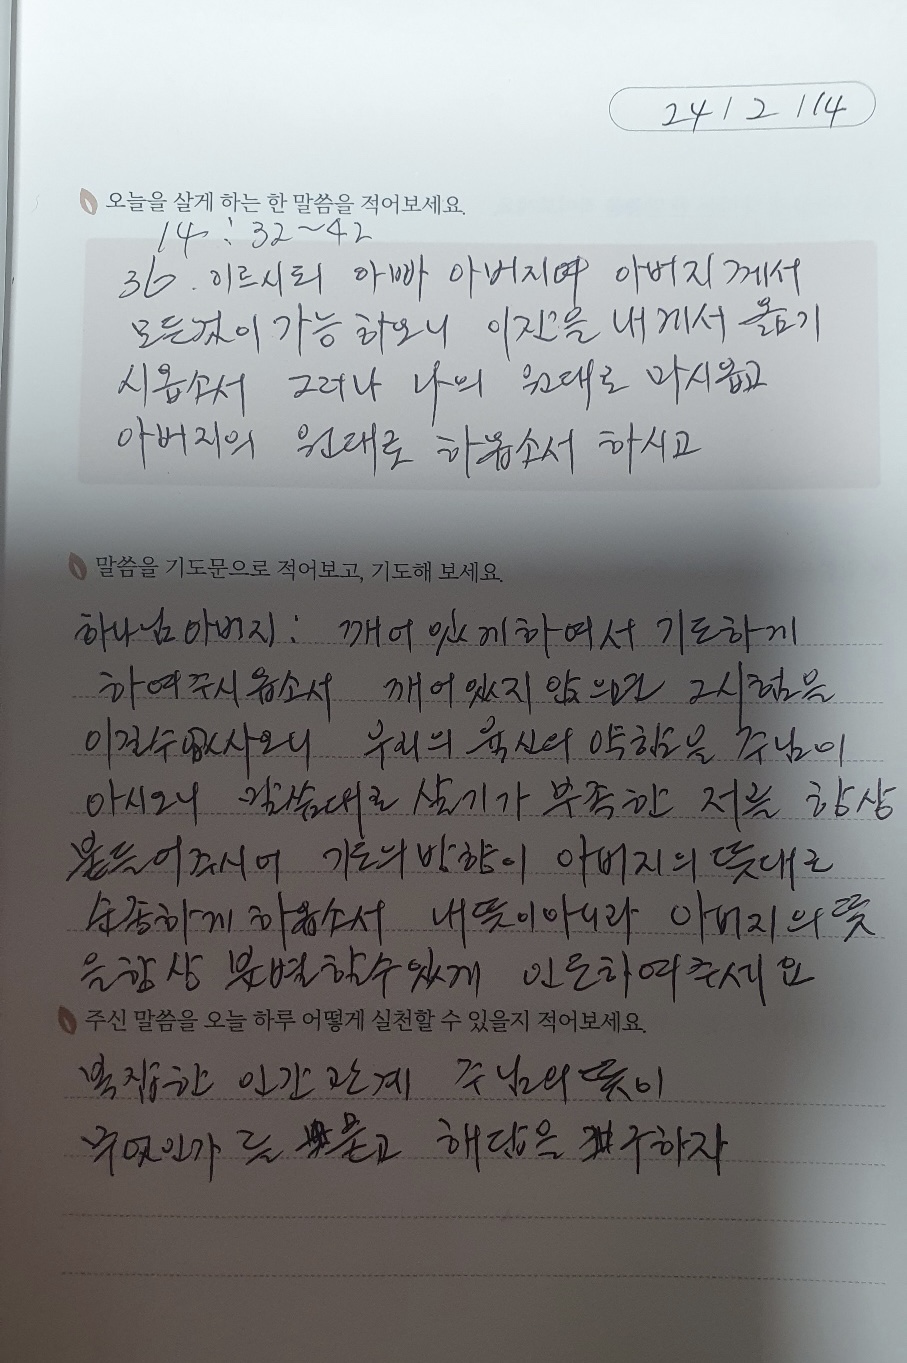 24 / 2 / 14
오늘을 살게 하는 한 말씀을 적어보세요.
14 : 32~42
36. 이르시되 아빠 아버지여 아버지께서
모든것이 가능하오니 이잔을 내게서 옮기
시옵소서 그러나 나의 원대로 마시옵고
아버지의 원대로 하옵소서 하시고
말씀을 기도문으로 적어보고, 기도해 보세요.
하나님아버지: 깨어 있게하여서 기도하게
하여주시옵소서 깨어있지 않으면 그시험을
이길수없사오니 우리의 육신의 약함을 주님이
아시오니 말씀대로 살기가 부족한 저를 항상
붙들어주시어 기도의 방향이 아버지의 뜻대로
순종하게 하옵소서 내뜻이아니라 아버지의 뜻
을항상 분별할수있게 인도하여주세요
주신 말씀을 오늘 하루 어떻게 실천할 수 있을지 적어보세요.
복잡한 인간관계 주님의 뜻이
무엇인가 를 묻고 해답을 구하자